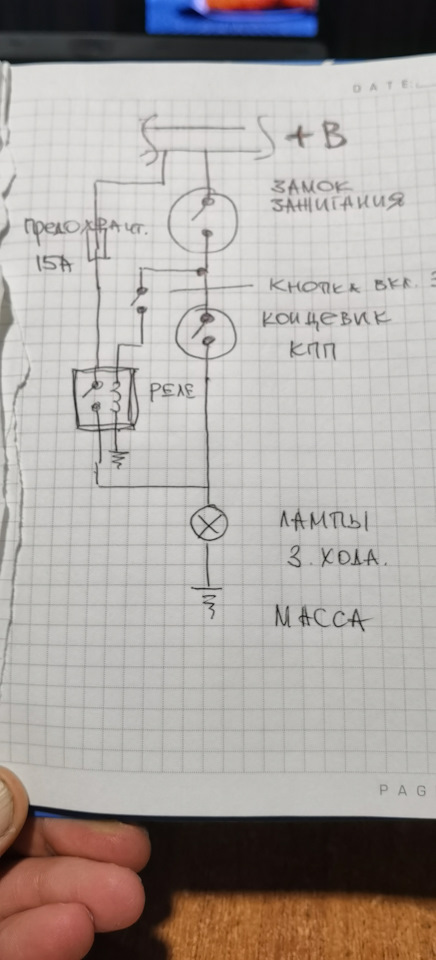 DATE:
+ В
ЗАМОК
ЗАЖИГАНИЯ
15А
КНОПКА ВКЛ. З
КОНЦЕВИК
КПП
РЕЛЕ
ЛАМПЫ
З. ХОДА.
МАССА
PAG